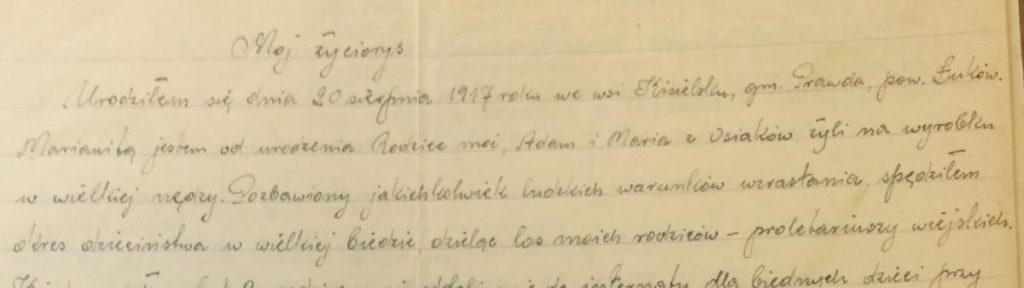 Mój życiorys
Urodziłem się dnia 20 sierpnia 1917 roku we wsi Kisielsku, gm. Prawda, pow. Łuków.
Mariawitą jestem od urodzenia. Rodzice moi, Adam i Maria z Osiaków żyli na wyrobku
w wielkiej nędzy. Pozbawiony jakichkolwiek ludzkich warunków wzrastania, spędziłem
okres dzieciństwa w wielkiej biedzie dzieląc los moich rodziców – proletariuszy wiejskich.
do internatu dla biednych dzieci przy